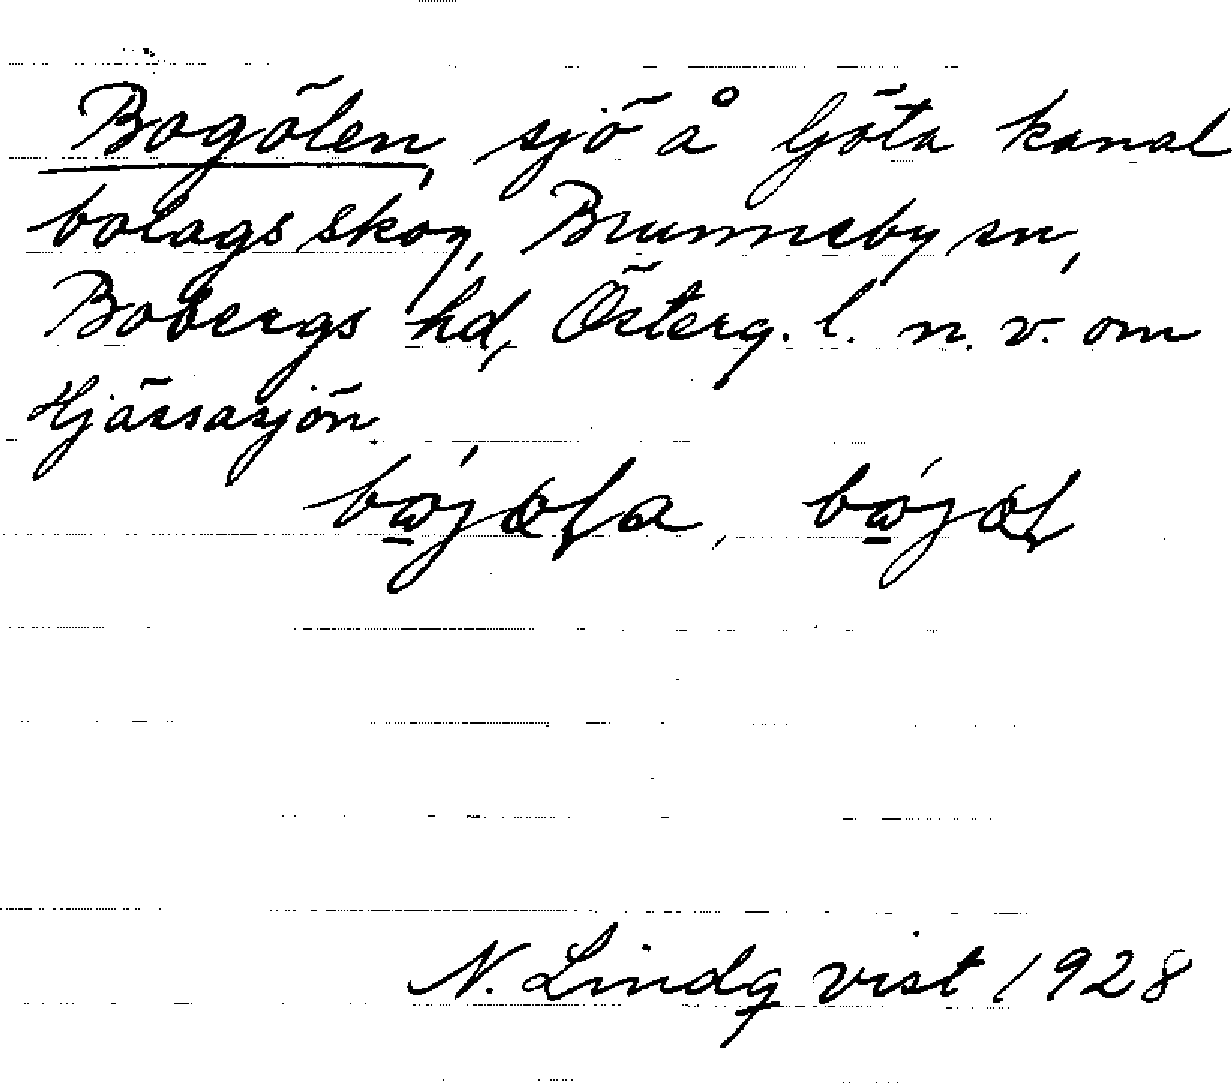 Bogölen, sjö å Göta kanal
bolags skog, Brunneby sn,
Bobergs hd, Österg. l. n. v. om
Hjässasjön
N. Lindqvist 1928